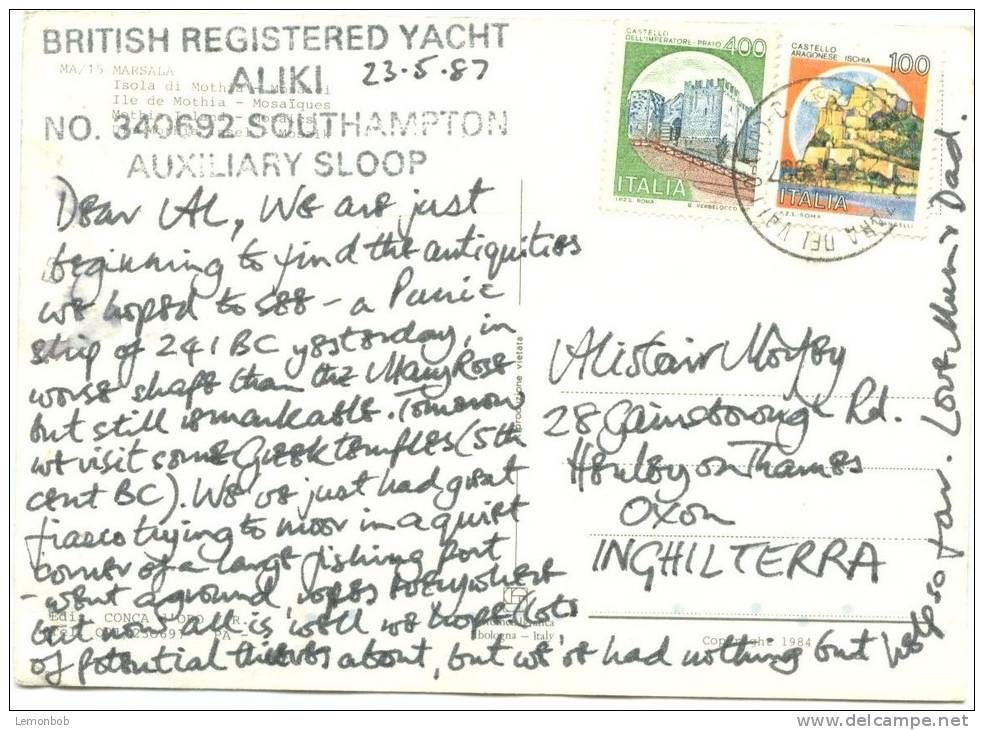 BRITISH REGISTERED YACHT
ALIKI
23.5.87
NO. 340692 SOUTHAMPTON
AUXILIARY SLOOP
MA/15 MARSALA
Isola di Mothia
Ile de Mothia - Mosaïques
CASTELLO
DELL'IMPERATORE-PRATO
400
ITALIA
I.P.Z.S. ROMA
CASTELLO
ARAGONESE ISCHIA
100
ITALIA
I.P.Z.S. ROMA
Dear Al, We are just
beginning to find the antiquities
we hoped to see - a Punic
ship of 241 BC yesterday, in
worse shape than the Mary Rose
but still remarkable. Tomorrow
we visit some Greek temples (5th
cent BC). We've just had great
fiasco trying to moor in a quiet
corner of a large fishing port
- went aground, ropes everywhere
but now all is well we hope - lots
of potential thieves about, but we've had nothing but help
so far. Love Mum & Dad.
Alistair
28 Gainsborough Rd.
Henley on Thames
Oxon
INGHILTERRA
riproduzione vietata
CONCA D'ORO
bologna - Italy
Copyright 1984
Lemonbob
www.delcampe.net